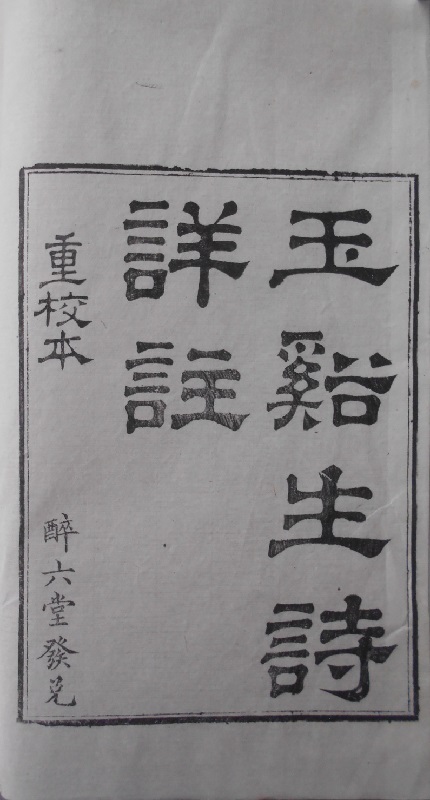 玉谿生詩
詳註
重校本
醉六堂發兌